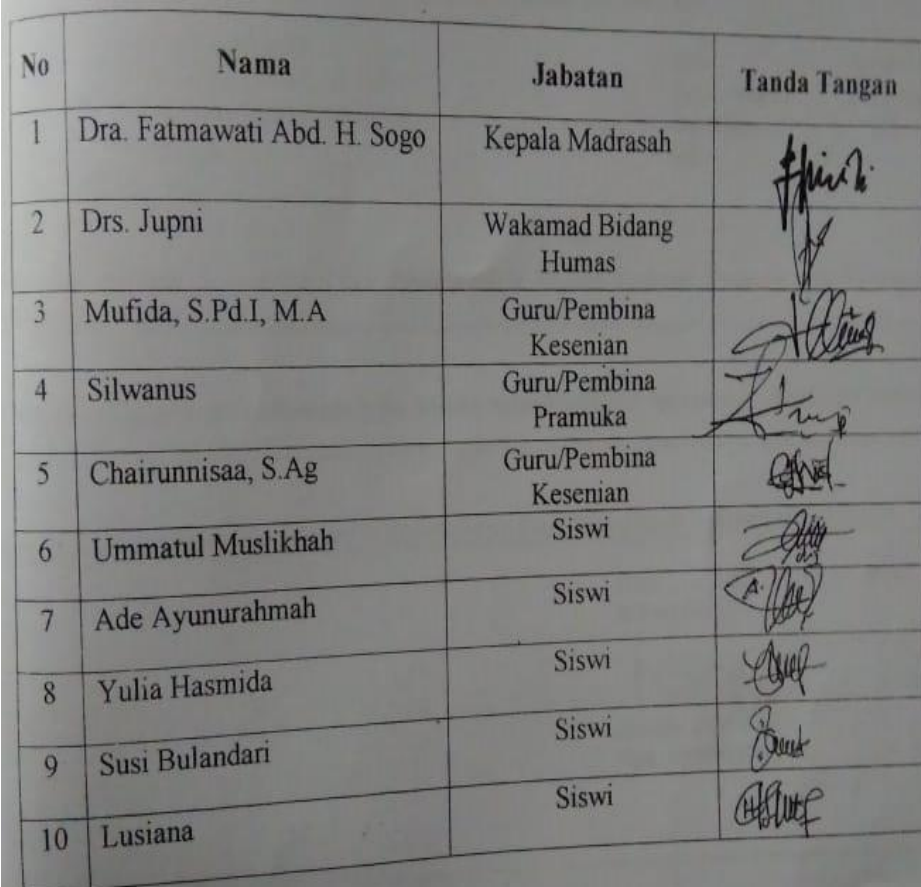 No Nama Jabatan Tanda Tangan
1 Dra. Fatmawati Abd. H. Sogo Kepala Madrasah
2 Drs. Jupni Wakamad Bidang
Humas
3 Mufida, S.Pd.I, M.A Guru/Pembina
Kesenian
4 Silwanus Guru/Pembina
Pramuka
5 Chairunnisaa, S.Ag Guru/Pembina
Kesenian
6 Ummatul Muslikhah Siswi
7 Ade Ayunurahmah Siswi
8 Yulia Hasmida Siswi
9 Susi Bulandari Siswi
10 Lusiana Siswi